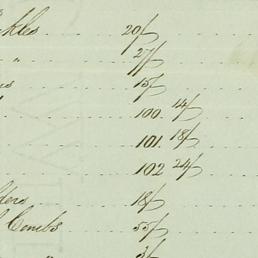 kles 20/
" 27/
es 15/
100. 14/
101. 18/
102 24/
ders 18/
Combs 55/
" 3/